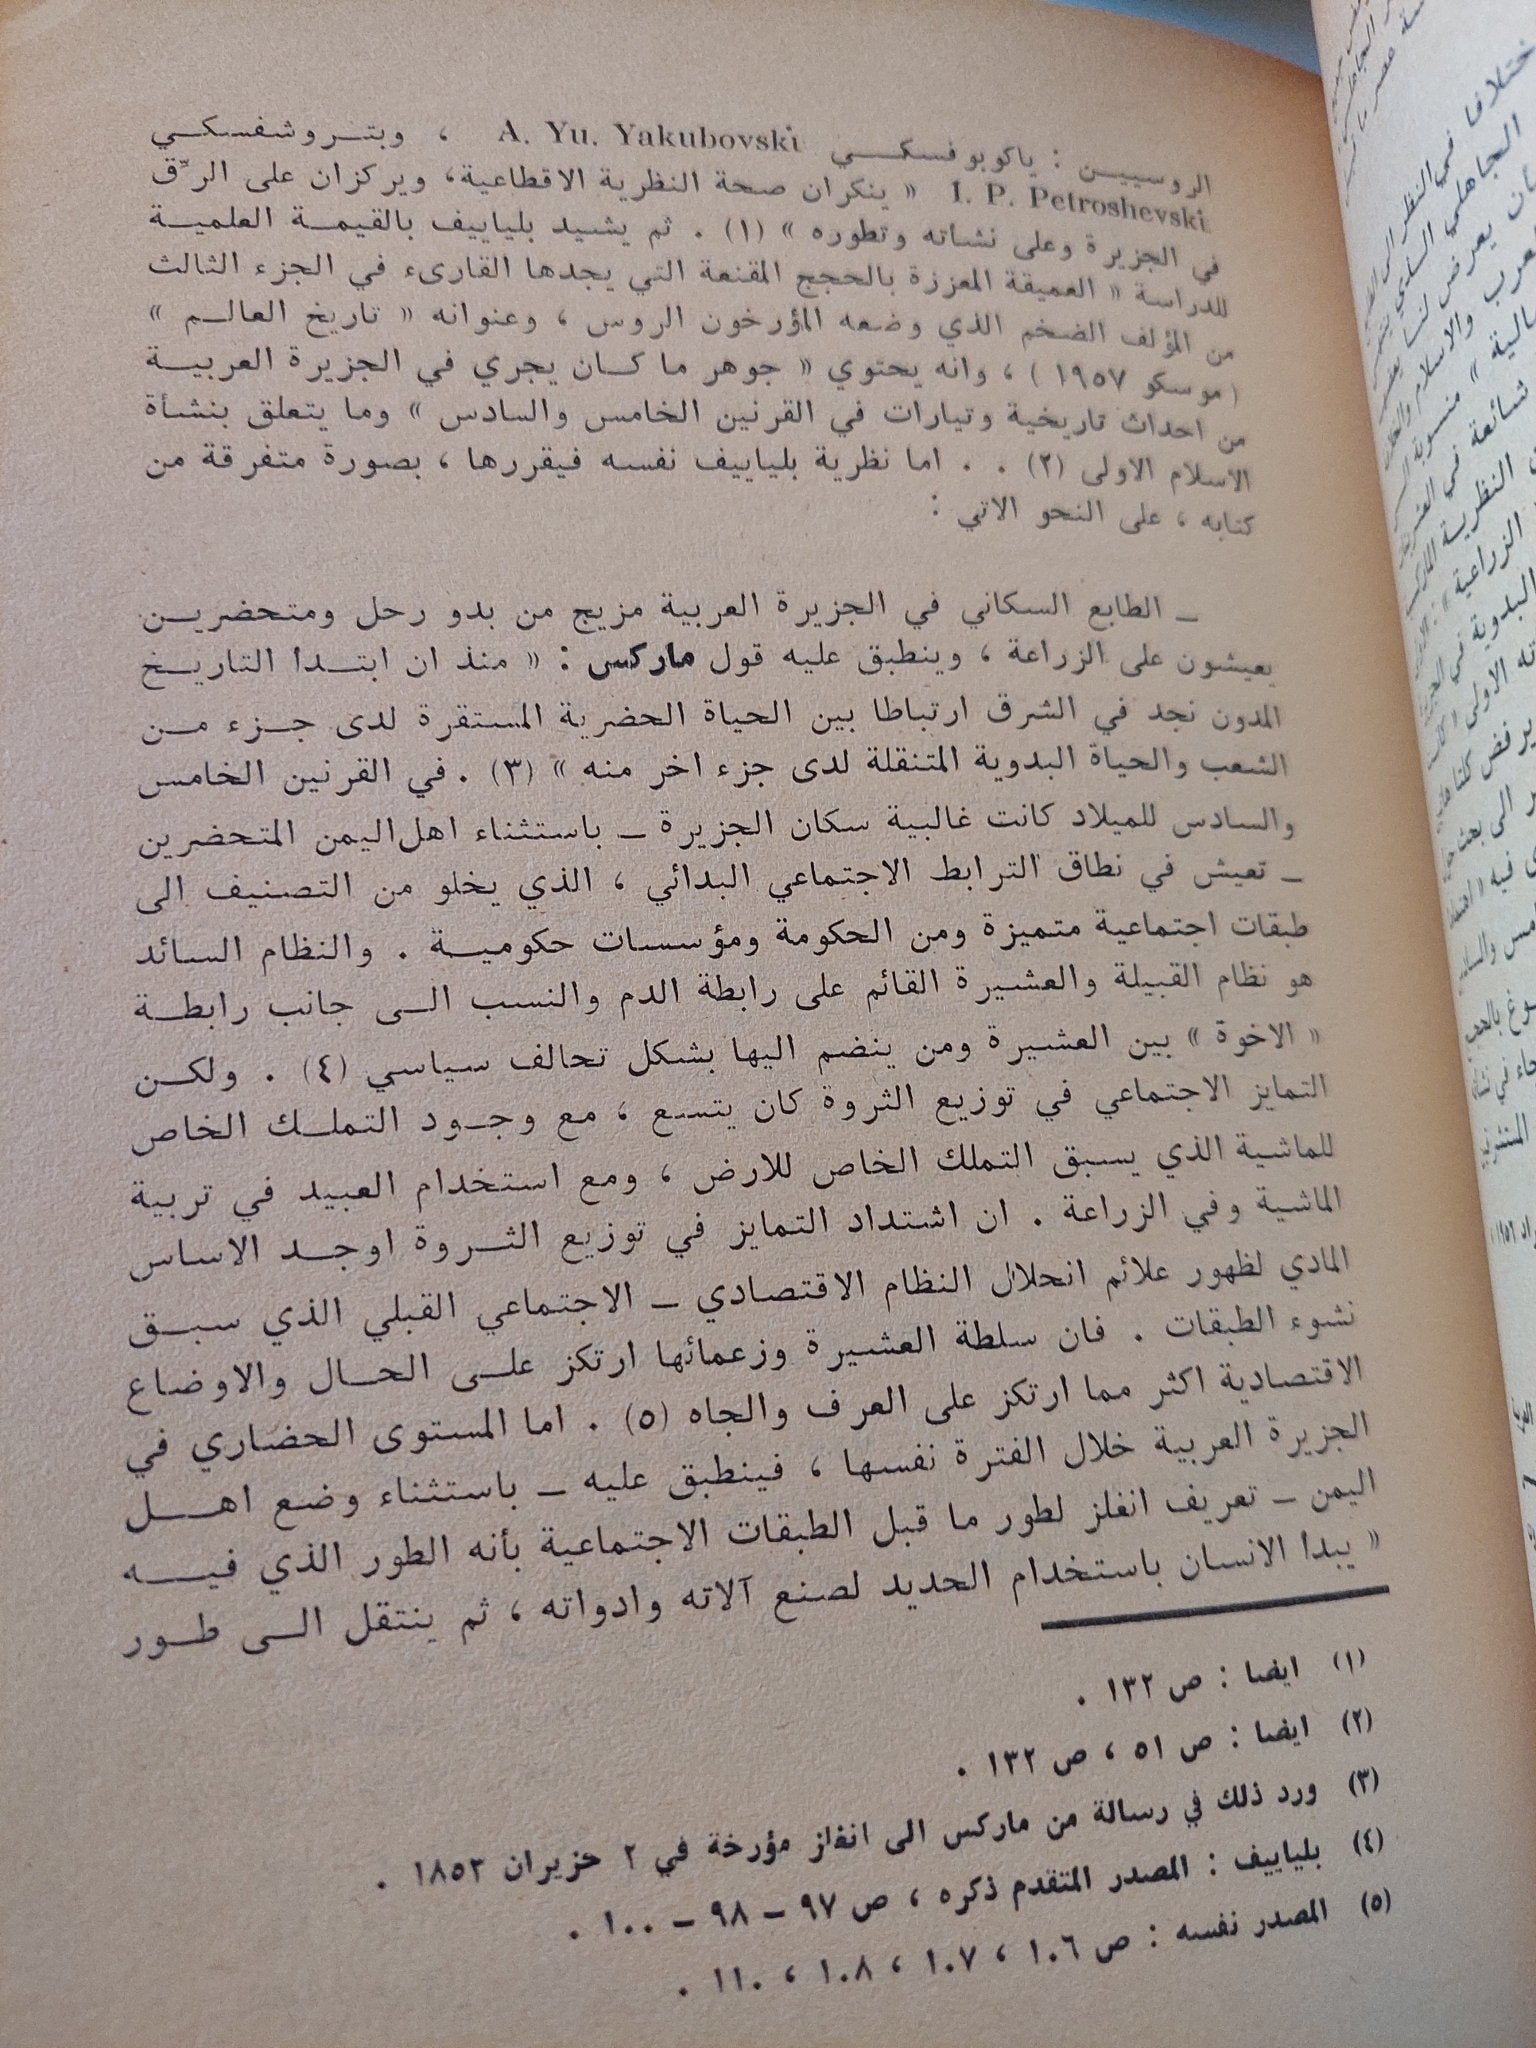 الروسيين : ياكوبوفسكي A. Yu. Yakubovski ، وبتروشفسكي
I. P. Petroshevski « ينكران صحة النظرية الاقطاعية، ويركزان على الرّق
في الجزيرة وعلى نشاته وتطوره » (١) . ثم يشيد بلياييف بالقيمة العلمية
للدراسة « العميقة المعززة بالحجج المقنعة التي يجدها القارىء في الجزء الثالث
من المؤلف الضخم الذي وضعه المؤرخون الروس ، وعنوانه « تاريخ العالم »
(موسكو ١٩٥٧ ) ، وانه يحتوي « جوهر ما كان يجري في الجزيرة العربية
من احداث تاريخية وتيارات في القرنين الخامس والسادس » وما يتعلق بنشأة
الاسلام الاولى (٢) . . اما نظرية بلياييف نفسه فيقررها ، بصورة متفرقة من
كتابه ، على النحو الاتي :
ــ الطابع السكاني في الجزيرة العربية مزيج من بدو رحل ومتحضرين
يعيشون على الزراعة ، وينطبق عليه قول ماركس : « منذ ان ابتدا التاريخ
المدون نجد في الشرق ارتباطا بين الحياة الحضرية المستقرة لدى جزء من
الشعب والحياة البدوية المتنقلة لدى جزء اخر منه » (٣) . في القرنين الخامس
والسادس للميلاد كانت غالبية سكان الجزيرة ــ باستثناء اهل اليمن المتحضرين
ــ تعيش في نطاق الترابط الاجتماعي البدائي ، الذي يخلو من التصنيف الى
طبقات اجتماعية متميزة ومن الحكومة ومؤسسات حكومية . والنظام السائد
هو نظام القبيلة والعشيرة القائم على رابطة الدم والنسب الى جانب رابطة
« الاخوة » بين العشيرة ومن ينضم اليها بشكل تحالف سياسي (٤) . ولكن
التمايز الاجتماعي في توزيع الثروة كان يتسع ، مع وجود التملك الخاص
للماشية الذي يسبق التملك الخاص للارض ، ومع استخدام العبيد في تربية
الماشية وفي الزراعة . ان اشتداد التمايز في توزيع الثروة اوجد الاساس
المادي لظهور علائم انحلال النظام الاقتصادي ــ الاجتماعي القبلي الذي سبق
نشوء الطبقات . فان سلطة العشيرة وزعمائها ارتكز على الحال والاوضاع
الاقتصادية اكثر مما ارتكز على العرف والجاه (٥) . اما المستوى الحضاري في
الجزيرة العربية خلال الفترة نفسها ، فينطبق عليه ــ باستثناء وضع اهل
اليمن ــ تعريف انفلز لطور ما قبل الطبقات الاجتماعية بأنه الطور الذي فيه
« يبدا الانسان باستخدام الحديد لصنع آلاته وادواته ، ثم ينتقل الى طور
(١) ايضا : ص ١٣٢ .
(٢) ايضا : ص ٥١ ، ص ١٣٢ .
(٣) ورد ذلك في رسالة من ماركس الى انفلز مؤرخة في ٢ حزيران ١٨٥٣ .
(٤) بلياييف : المصدر المتقدم ذكره ، ص ٩٧ ــ ٩٨ ــ ١٠٠ .
(٥) المصدر نفسه : ص ١٠٦ ، ١٠٧ ، ١٠٨ ، ١١٠ .